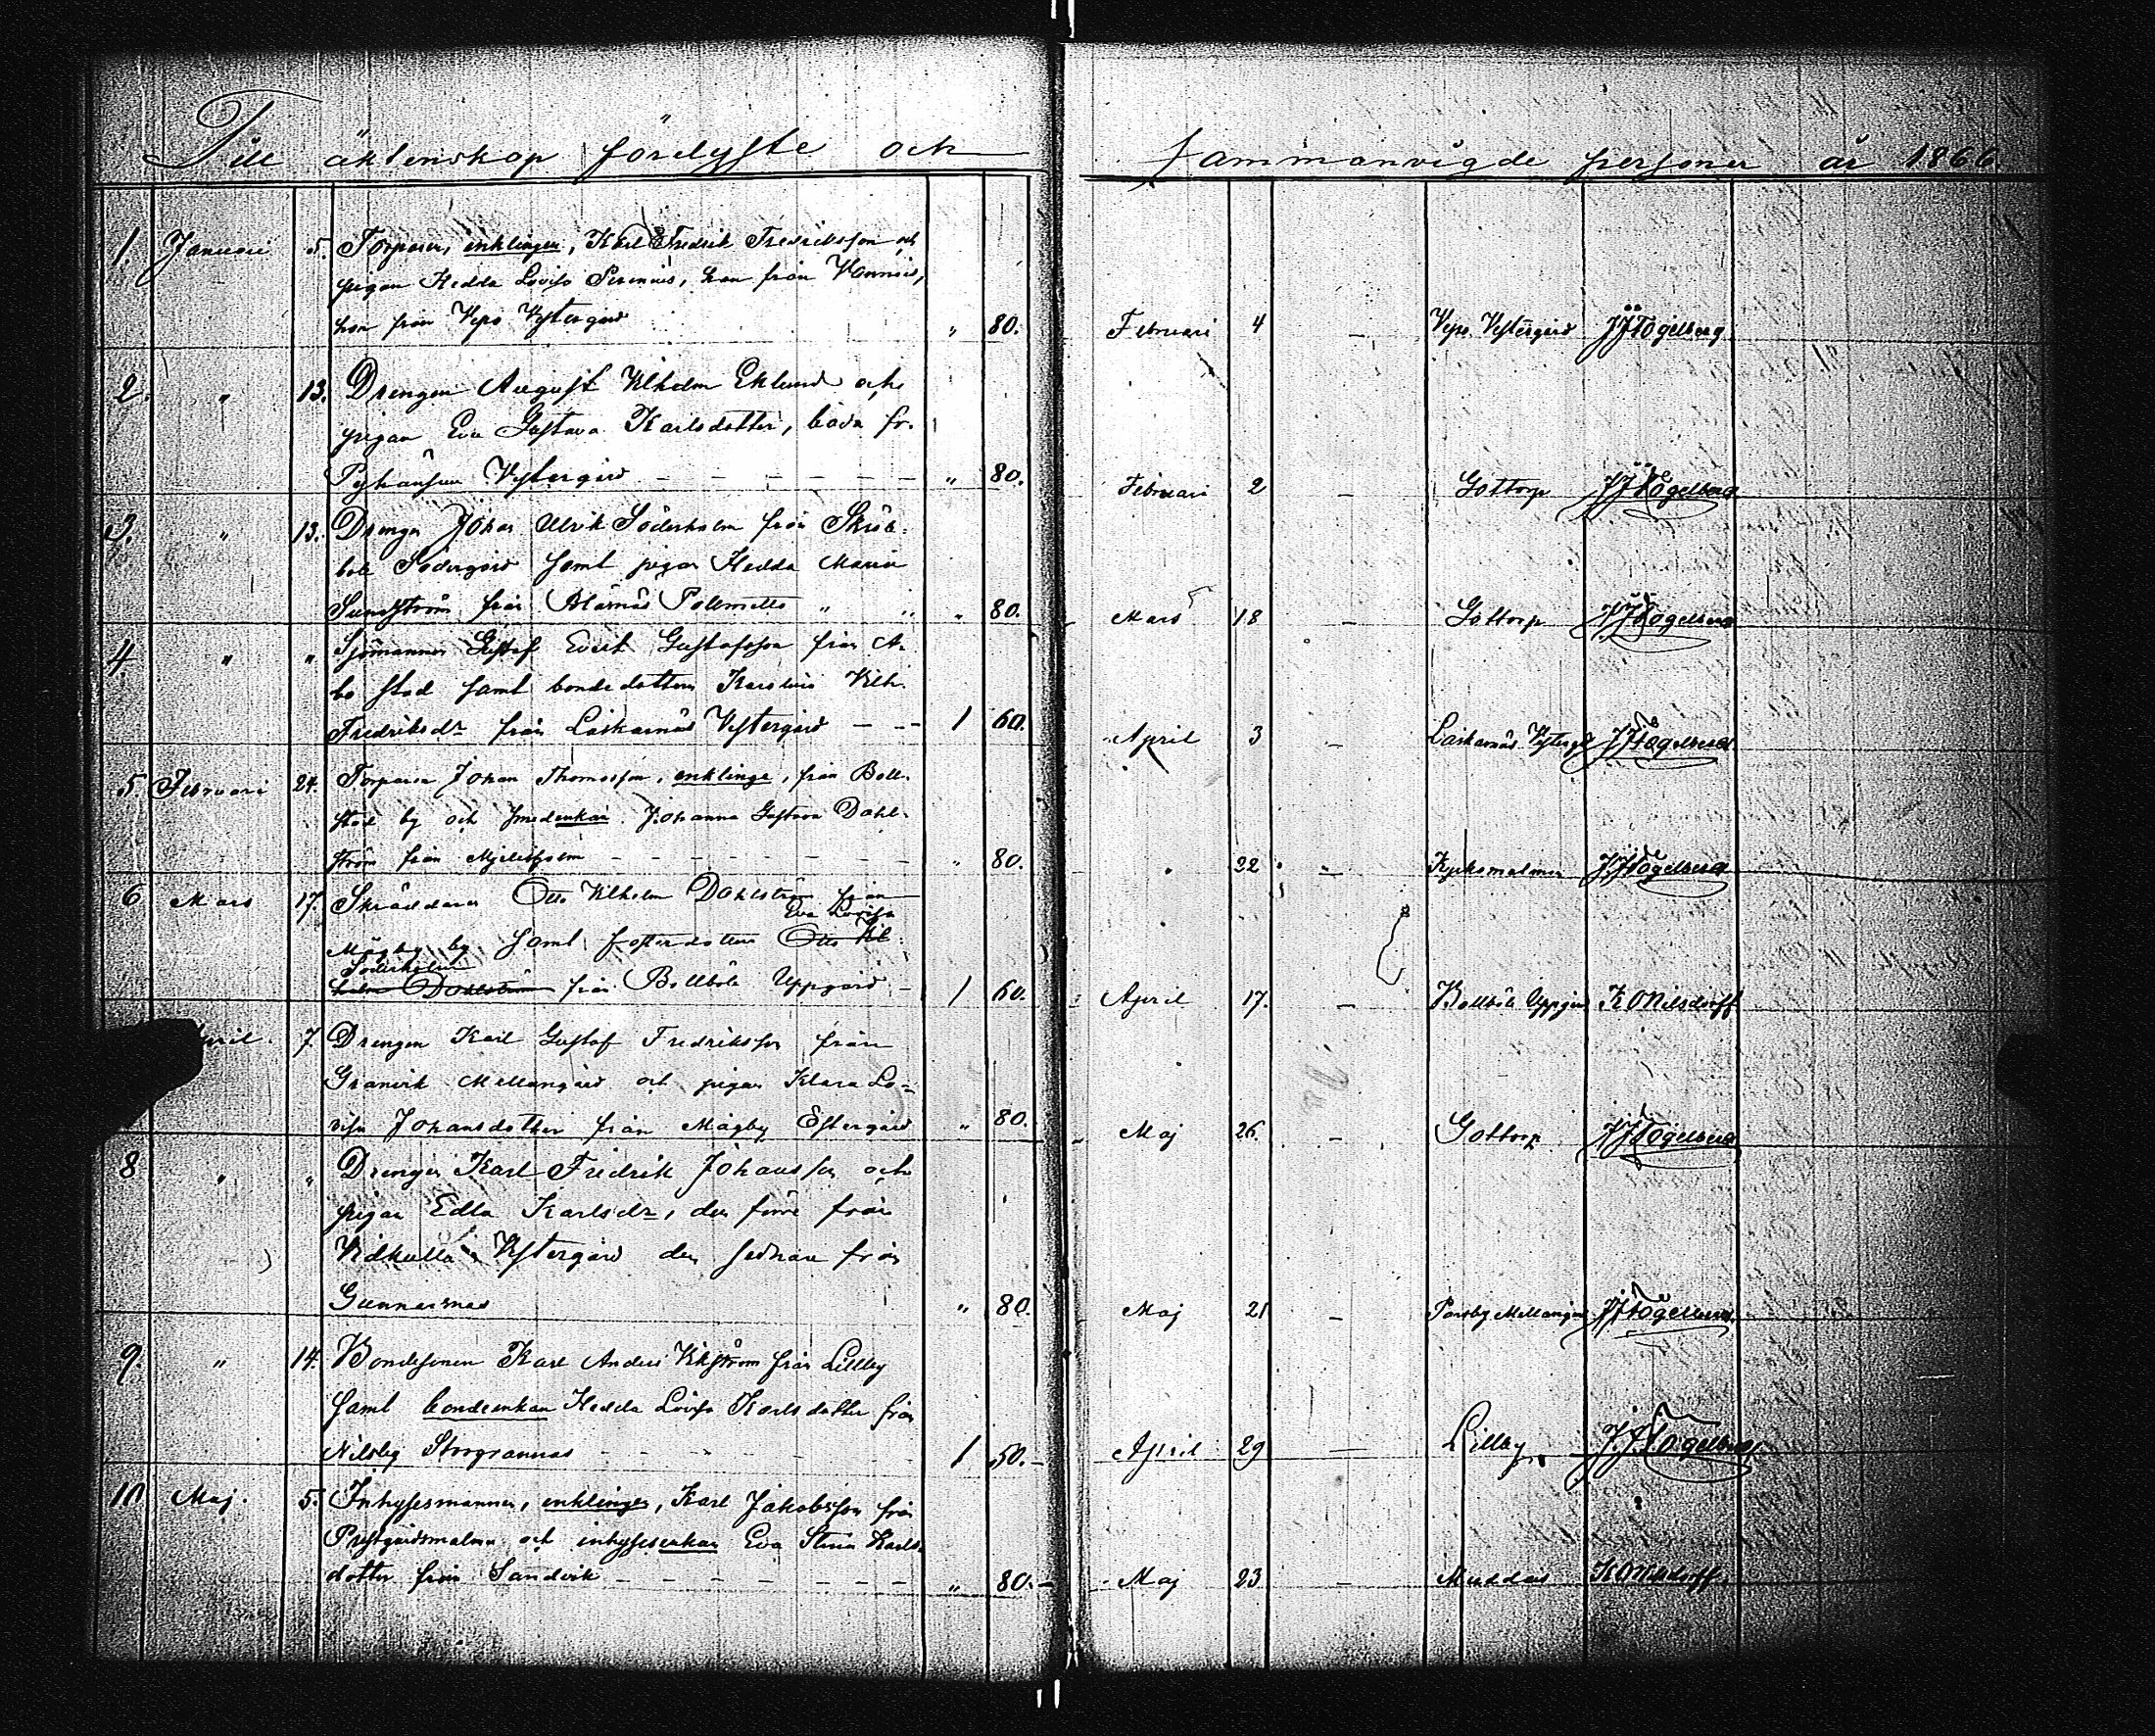 Till äktenskap förelyste och sammanvigde personer år 1866
1. Januari 5. Torparen, enklingen, Karl Fredrik Fredriksson och
pigan Hedda Lovisa Serenius, han från
hon från Vepo Vestergård " 80. Februari 4 — Vepo Vestergård J J Fogelberg
2. " 13. Drengen August Vilhelm Eklund och
pigan Eva Gustava Karlsdotter, båda fr.
Pyhänsuu Vestergård " 80. Februari 2 — Gottorp J J Fogelberg
3. " 13. Drengen Johan Ulrik Söderholm från Skräb-
bole Södergård samt pigan Hedda Maria
Sundström från " 80. Mars 18 — Gottorp J J Fogelberg
4. " " Sjömannen Gustaf Evert Gustafsson från Å-
bo stad samt bondedottern Karolina Vilh.
Fredriksdr från Laskarnäs Vestergård — 1 60. April 3 — Laskarnäs Vesterg J J Fogelberg
5 Februari 24. Torparen Johan Thomasson, enklinge, från Boll-
stad by och smedenkan Johanna Gustava Dahl-
ström från " 80. " 22 " Kyrksmalmen J J Fogelberg
6 Mars 17. Skräddaren Otto Vilhelm Dahlström från
Eva Lovisa
Mågby by samt fosterdottern Otto Vil
Söderholm
helm Dahlström från Bollböle Uppgård — 1 60. April 17. — Bollböle Uppgård K O Nilsdorff
April. 7 Drengen Karl Gustaf Fredriksson från
Granvik Mellangård och pigan Klara Lo-
visa Johansdotter från Mågby Östergård " 80. Maj 26. — Gottorp J J Fogelberg
8 " " Drengen Karl Fredrik Johansson och
pigan Edla Karlsdr, den förre från
Vidkulla Vestergård den sednare från
Gunnarsnäs " 80. Maj 21 — Parsby Mellangård J J Fogelberg
9 " 14. Bondesonen Karl Anders Vikström från Lillby
samt bondeenkan Hedda Lovisa Karlsdotter från
Nilsby Storgrannas 1 50. April 29 — Lillby J. J. Fogelberg
10 Maj. 5. Inhysesmannen, enklingen, Karl Jakobsson från
Prestgårdsmalmen och inhysesenkan Eva Stina Karls-
dotter från Sandvik " 80. Maj 23 — Muddais K O Nilsdorff